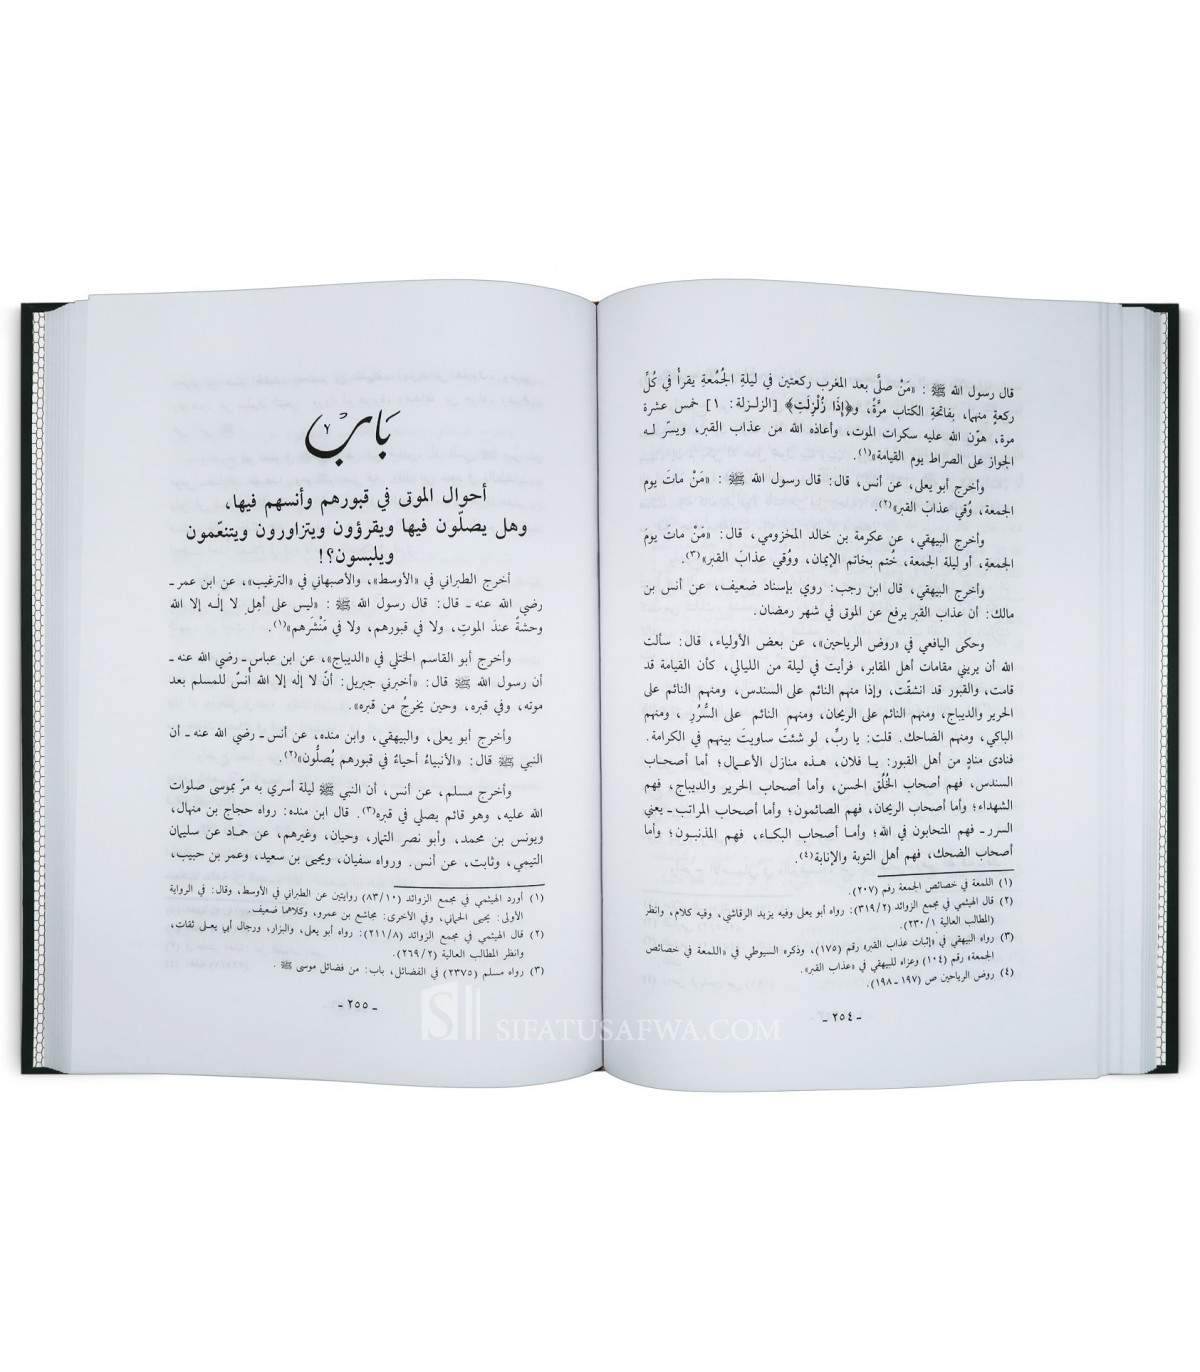 قال رسول الله ﷺ : «مَنْ صلَّى بعد المغرب ركعتين في ليلةِ الجُمُعةِ يقرأ في كُلِّ
ركعةٍ منهما، بفاتحةِ الكتاب مرَّةً، و﴿إِذَا زُلْزِلَتِ﴾ [الزلـزلة: ١] خمس عشرة
مرة، هوّن الله عليه سكرات الموت، وأعاذه الله من عذاب القبر، ويسّر لـه
الجواز على الصراط يوم القيامة»(١).
وأخرج أبو يعلى، عن أنس، قال: قال رسول الله ﷺ : «مَنْ ماتَ يوم
الجمعة، وُقي عذابَ القبر»(٢).
وأخرج البيهقي، عن عكرمة بن خالد المخزومي، قال: «مَنْ ماتَ يومَ
الجمعةِ، أو ليلة الجمعة، خُتم بخاتم الإيمان، ووُقي عذابَ القبر»(٣).
وأخرج البيهقي، قال ابن رجب: روي بإسناد ضعيف، عن أنس بن
مالك: أن عذاب القبر يرفع عن الموتى في شهر رمضان.
وحكى اليافعي في «روض الرياحين»، عن بعض الأولياء، قال: سألت
الله أن يريني مقامات أهل المقابر، فرأيت في ليلة من الليالي، كأن القيامة قد
قامت، والقبور قد انشقت، وإذا منهم النائم على السندس، ومنهم النائم على
الحرير والديباج، ومنهم النائم على الريحان، ومنهم النائم على السُّرُرِ ، ومنهم
الباكي، ومنهم الضاحك. قلت: يا ربِّ، لو شئتَ ساويتَ بينهم في الكرامة.
فنادى منادٍ من أهل القبور: يـا فلان، هـذه منازل الأعـمال؛ أما أصحاب
السندس، فهم أصحاب الخُلُق الحسن، أما أصحاب الحرير والديباج، فهم
الشهداء؛ وأما أصحاب الريحان، فهم الصائمون؛ وأما أصحاب المراتب ـ يعني
السرر ـ فهم المتحابون في الله؛ وأمـا أصحاب البكـاء، فهم المذنبـون؛ وأما
أصحاب الضحك، فهم أهل التوبة والإنابة(٤).
(١) اللمعة في خصائص الجمعة رقم (٢٠٧).
(٢) قال الهيثمي في مجمع الزوائد (٣١٩/٢): رواه أبو يعلى وفيه يزيد الرقاشي، وفيه كلام، وانظر
المطالب العالية ٢٣٠/١).
(٣) رواه البيهقي في «إثبات عذاب القبر» رقم (١٧٥)، وذكره السيوطي في «اللمعة في خصائص
الجمعة» رقم (١٠٤) وعزاه للبيهقي في «عذاب القبر».
(٤) روض الرياحين ص (١٩٧ ـ ١٩٨).
ـ ٢٥٤ ـ
بَاب
أحوال الموتى في قبورهم وأنسهم فيها،
وهل يصلّون فيها ويقرؤون ويتزاورون ويتنعّمون
ويلبسون؟!
أخرج الطبراني في «الأوسط»، والأصبهاني في «الترغيب»، عن ابن عمر ـ
رضي الله عنه ـ قال: قال رسول الله ﷺ : «ليس على أهلِ لا إلـه إلا الله
وحشةٌ عندَ الموتِ، ولا في قبورهم، ولا في مَنْشَرهم»(١).
وأخرج أبو القاسم الختلي في «الديباج»، عن ابن عباس ـ رضي الله عنه ـ
أن رسول الله ﷺ قال: «أخبرني جبريل: أنّ لا إله إلا الله أُنسٌ للمسلم بعد
موته، وفي قبره، وحين يخرجُ من قبره».
وأخرج أبو يعلى، والبيهقي، وابن منده، عن أنس ـ رضي الله عنه ـ أن
النبي ﷺ قال: «الأنبياءُ أحياءٌ في قبورهم يُصلُّون»(٢).
وأخرج مسلم، عن أنس، أن النبي ﷺ ليلة أسري به مرّ بموسى صلوات
الله عليه، وهو قائم يصلي في قبره(٣). قال ابن منده: رواه حجاج بن منهال،
ويونس بن محمد، وأبو نصر التمار، وحيان، وغيرهم، عن حمـاد عن سليمان
التيمي، وثابت، عن أنس. ورواه سفيان، ويحيى بن سعيد، وعمر بن حبيب،
(١) أورد الهيثمي في مجمع الزوائد (٨٣/١٠) روايتين عن الطبراني في الأوسط، وقال: في الرواية
الأولى: يحيى الحماني، وفي الأخرى: مجاشع بن عمرو، وكلاهما ضعيف.
(٢) قال الهيثمي في مجمع الزوائد (٢١١/٨): رواه أبو يعلى، والبزار، ورجال أبي يعلى ثقات،
وانظر المطالب العالية (٢٦٩/٢).
(٣) رواه مسلم (٢٣٧٥) في الفضائل، باب: من فضائل موسى ﷺ .
ـ ٢٥٥ ـ
SIFATUSAFWA.COM